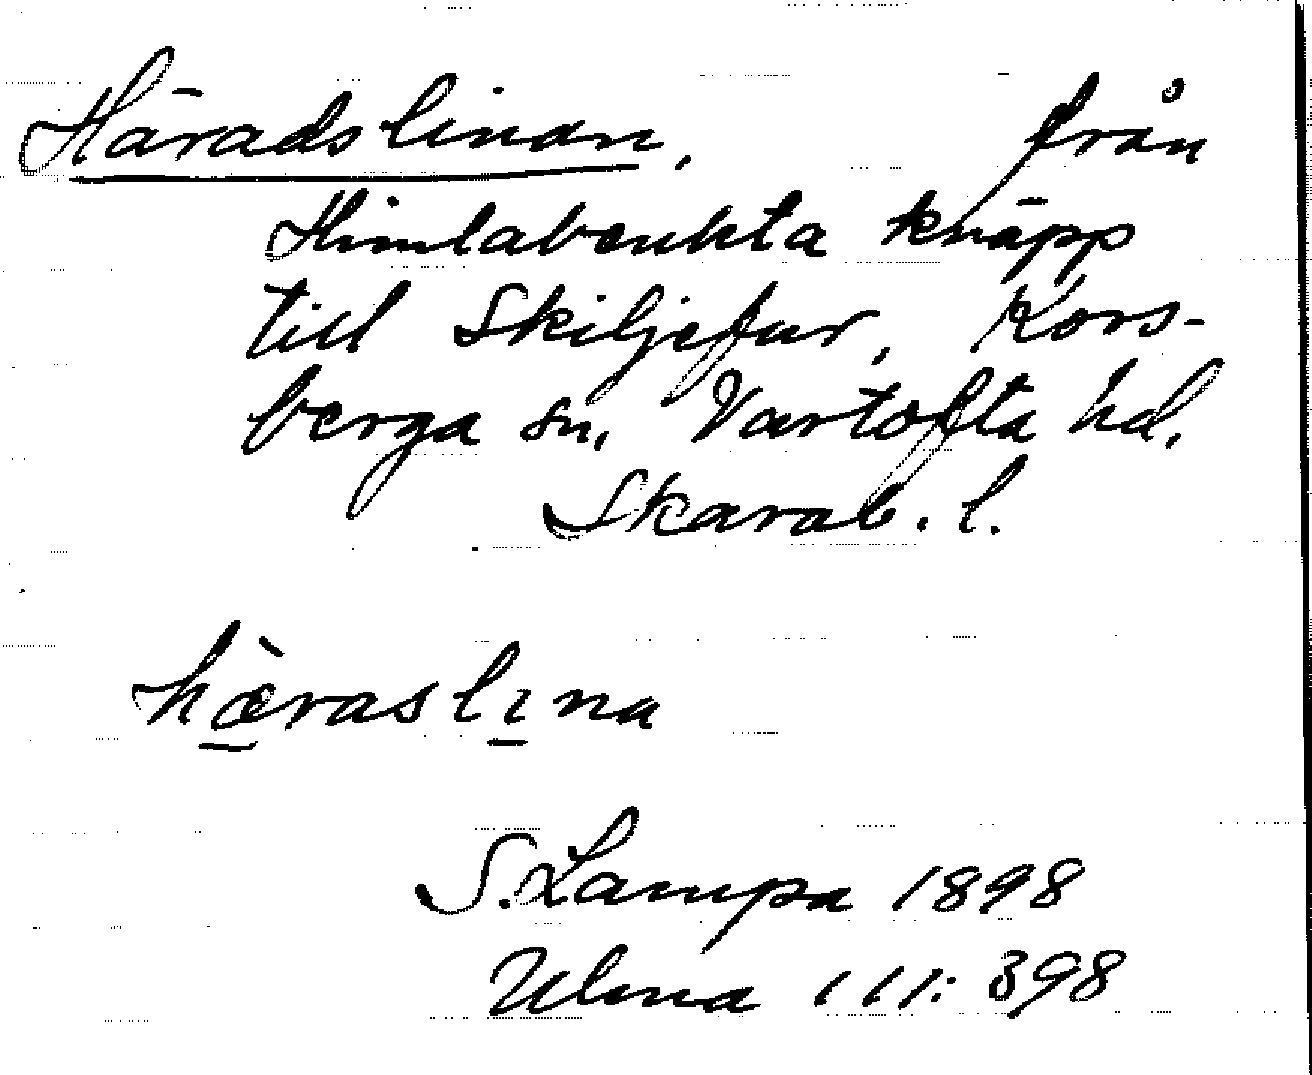 Häradslinan, från
Himlabrukta knäpp
till Skiljefur, Kors-
berga sn, Vartofta hd,
Skarab. l.
hæ̀raslına
S. Lampa 1898
Ulma 111:398